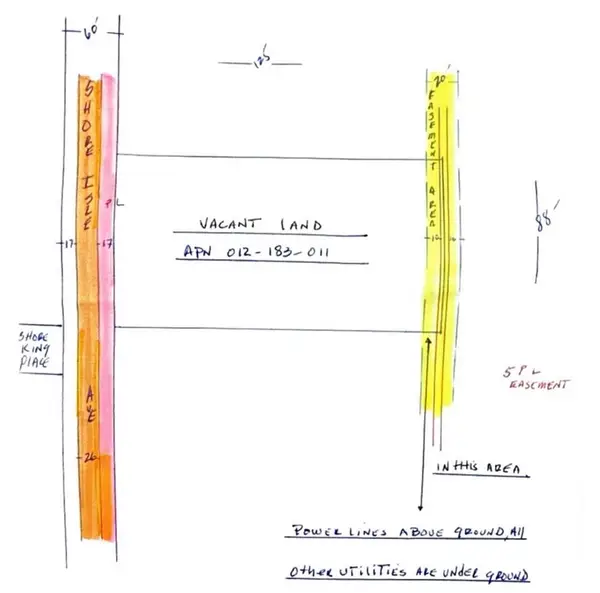 60'
125'
20'
SHORE ISLE
EASEMENT AREA
P L
VACANT LAND
APN 012-183-011
88'
17
17
10
10
SHORE
KING
PLACE
AVE
5' P L
EASEMENT
26
IN THIS AREA
POWER LINES ABOVE GROUND, All
OTHER UTILITIES ARE UNDER GROUND